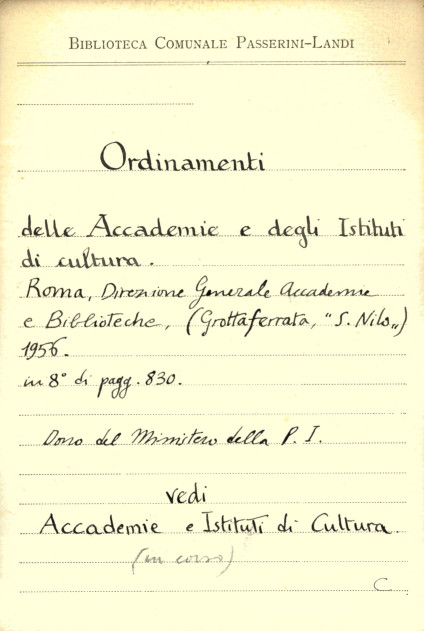 BIBLIOTECA COMUNALE PASSERINI-LANDI
Ordinamenti
delle Accademie e degli Istituti
di cultura.
Roma, Direzione Generale Accademie
e Biblioteche, (Grottaferrata, "S. Nilo„)
1956.
in 8° di pagg. 830.
Dono del Ministero della P. I.
vedi
Accademie e Istituti di Cultura.
(in corso)
C